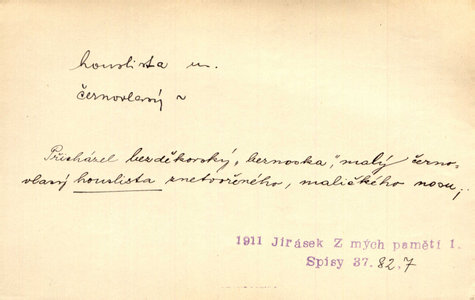 houslista m.
černovlasý ~
Přicházel bezděkovský „bernoška", malý černo-
vlasý houslista znetvořeného, maličkého nosu;.
1911 Jirásek Z mých pamětí 1.
Spisy 37. 82.7